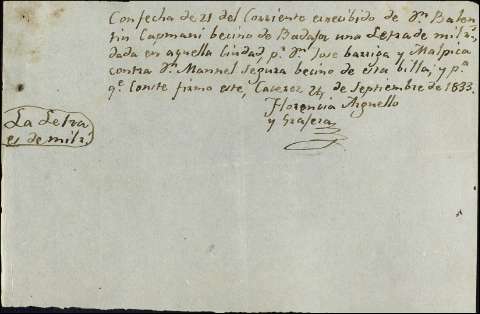 Con fecha de 21 del Corriente e rrecibido de Dn. Balen
tin Capmani becino de Badajoz una Letra de mil rs.
dada en aquella Ciudad, pr. Dn. Jose barriga y Malpica
contra Dn. Manuel Segura becino de esta billa, y pa.
qe. Conste firmo este, Cacerez 24, de Septiembre de 1833.
Florencia Arguello
y Grajera
La Letra
es de mil rs.